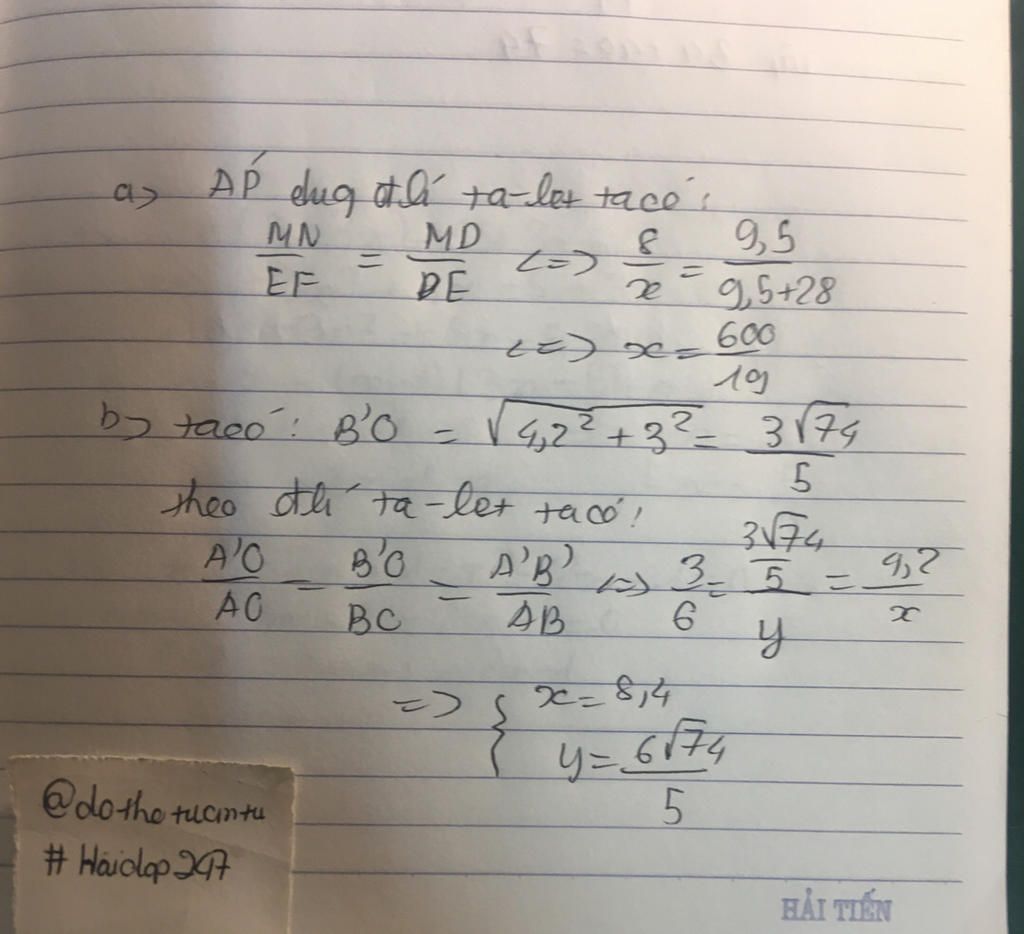 a> ÁP dụg đ.lí ta-let ta có:
MN/EF = MD/DE <=> 8/x = 9,5/9,5+28
<=> x = 600/19
b> ta có: B'O = √4,2² + 3² = 3√74/5
theo đ.lí ta-let ta có:
A'O/AO = B'O/BC = A'B'/AB <=> 3/6 = 3√74/5/y = 4,2/x
=> { x = 8,4
y = 6√74/5
@dothetuantu
# Hoidap247
HẢI TIẾN